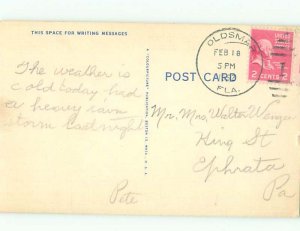 THIS SPACE FOR WRITING MESSAGES
OLDSMAR
FEB 18
5 PM
FLA.
2 CENTS 2
POST CARD
The weather is
cold today, had
a heavy rain
storm last night
Pete
Mr. Mrs. Walter Wenger
King St
Ephrata
Pa